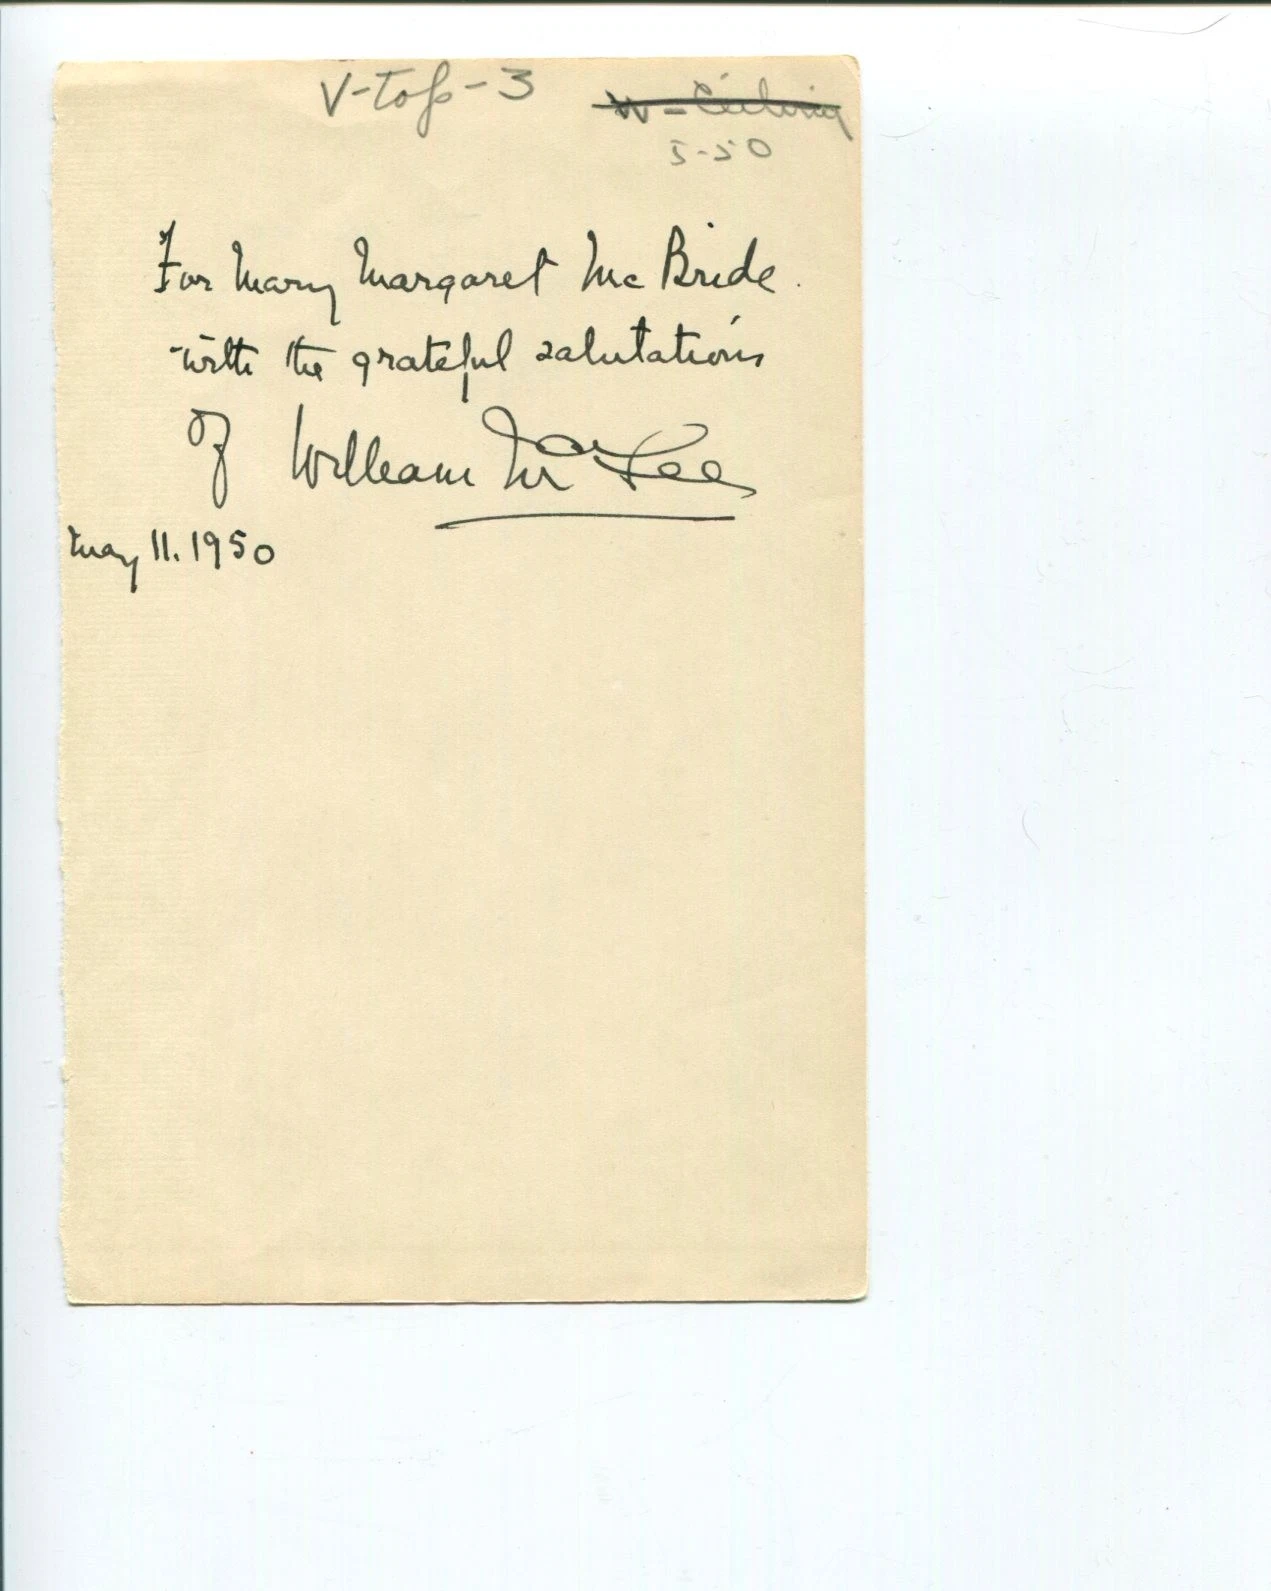 V-Top-3
W-Ceiling
5-50
For Mary Margaret McBride.
with the grateful salutations
of William McFee
May 11. 1950